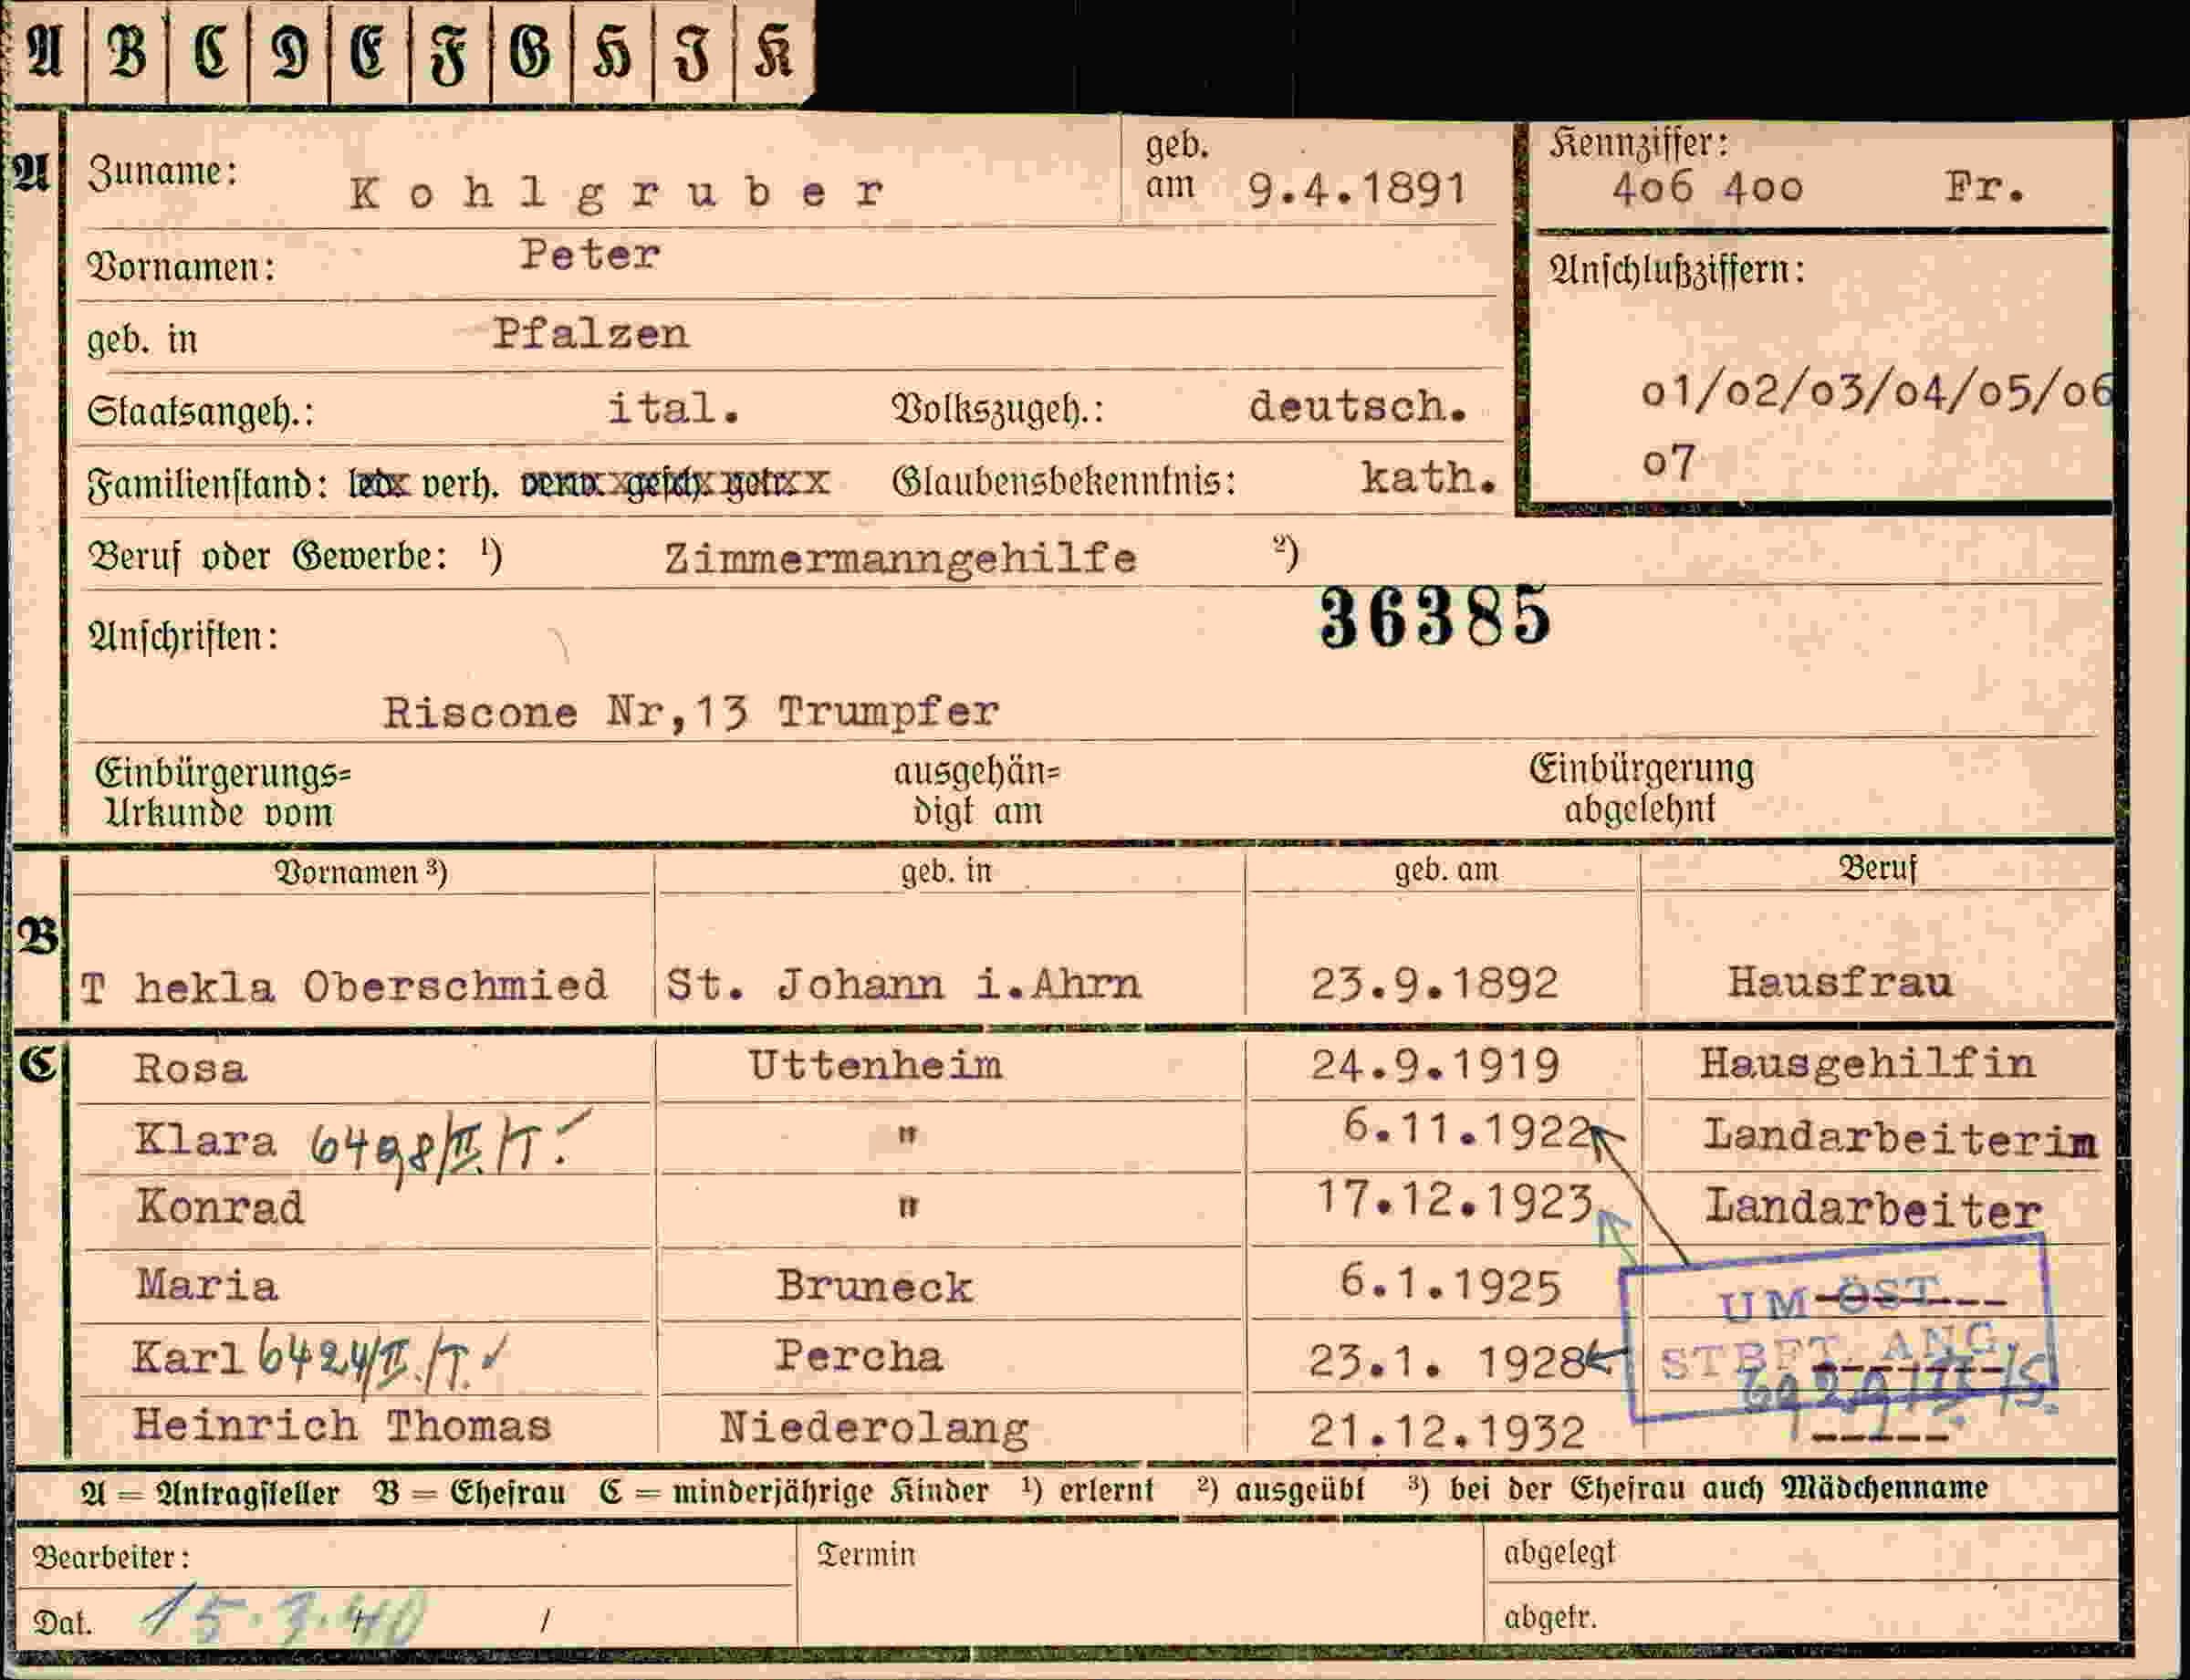 A B C D E F G H J K
A Zuname: Kohlgruber geb. am 9.4.1891 Kennziffer: 4o6 4oo Fr.
Vornamen: Peter
Anschlußziffern:
geb. in Pfalzen
Staatsangeh.: ital. Volkszugeh.: deutsch.
o1/o2/o3/o4/o5/o6
o7
Familienstand: led. verh. verw. gesch. getr. Glaubensbekenntnis: kath.
Beruf oder Gewerbe: ¹) Zimmermanngehilfe ²)
36385
Anschriften:
Riscone Nr,13 Trumpfer
Einbürgerungs= ausgehän= Einbürgerung
Urkunde vom digt am abgelehnt
Vornamen ³) geb. in geb. am Beruf
B
T hekla Oberschmied St. Johann i.Ahrn 23.9.1892 Hausfrau
C Rosa Uttenheim 24.9.1919 Hausgehilfin
Klara 6498/II./T. " 6.11.1922 Landarbeiterin
Konrad " 17.12.1923 Landarbeiter
Maria Bruneck 6.1.1925 -------
UM-ÖST
Karl 6424/II./T. Percha 23.1. 1928 -------
STBFT. ANG.
Heinrich Thomas Niederolang 21.12.1932 -----
A = Antragsteller B = Ehefrau C = minderjährige Kinder ¹) erlernt ²) ausgeübt ³) bei der Ehefrau auch Mädchenname
Bearbeiter: Termin abgelegt
Dat. 15.3.40 / abgetr.